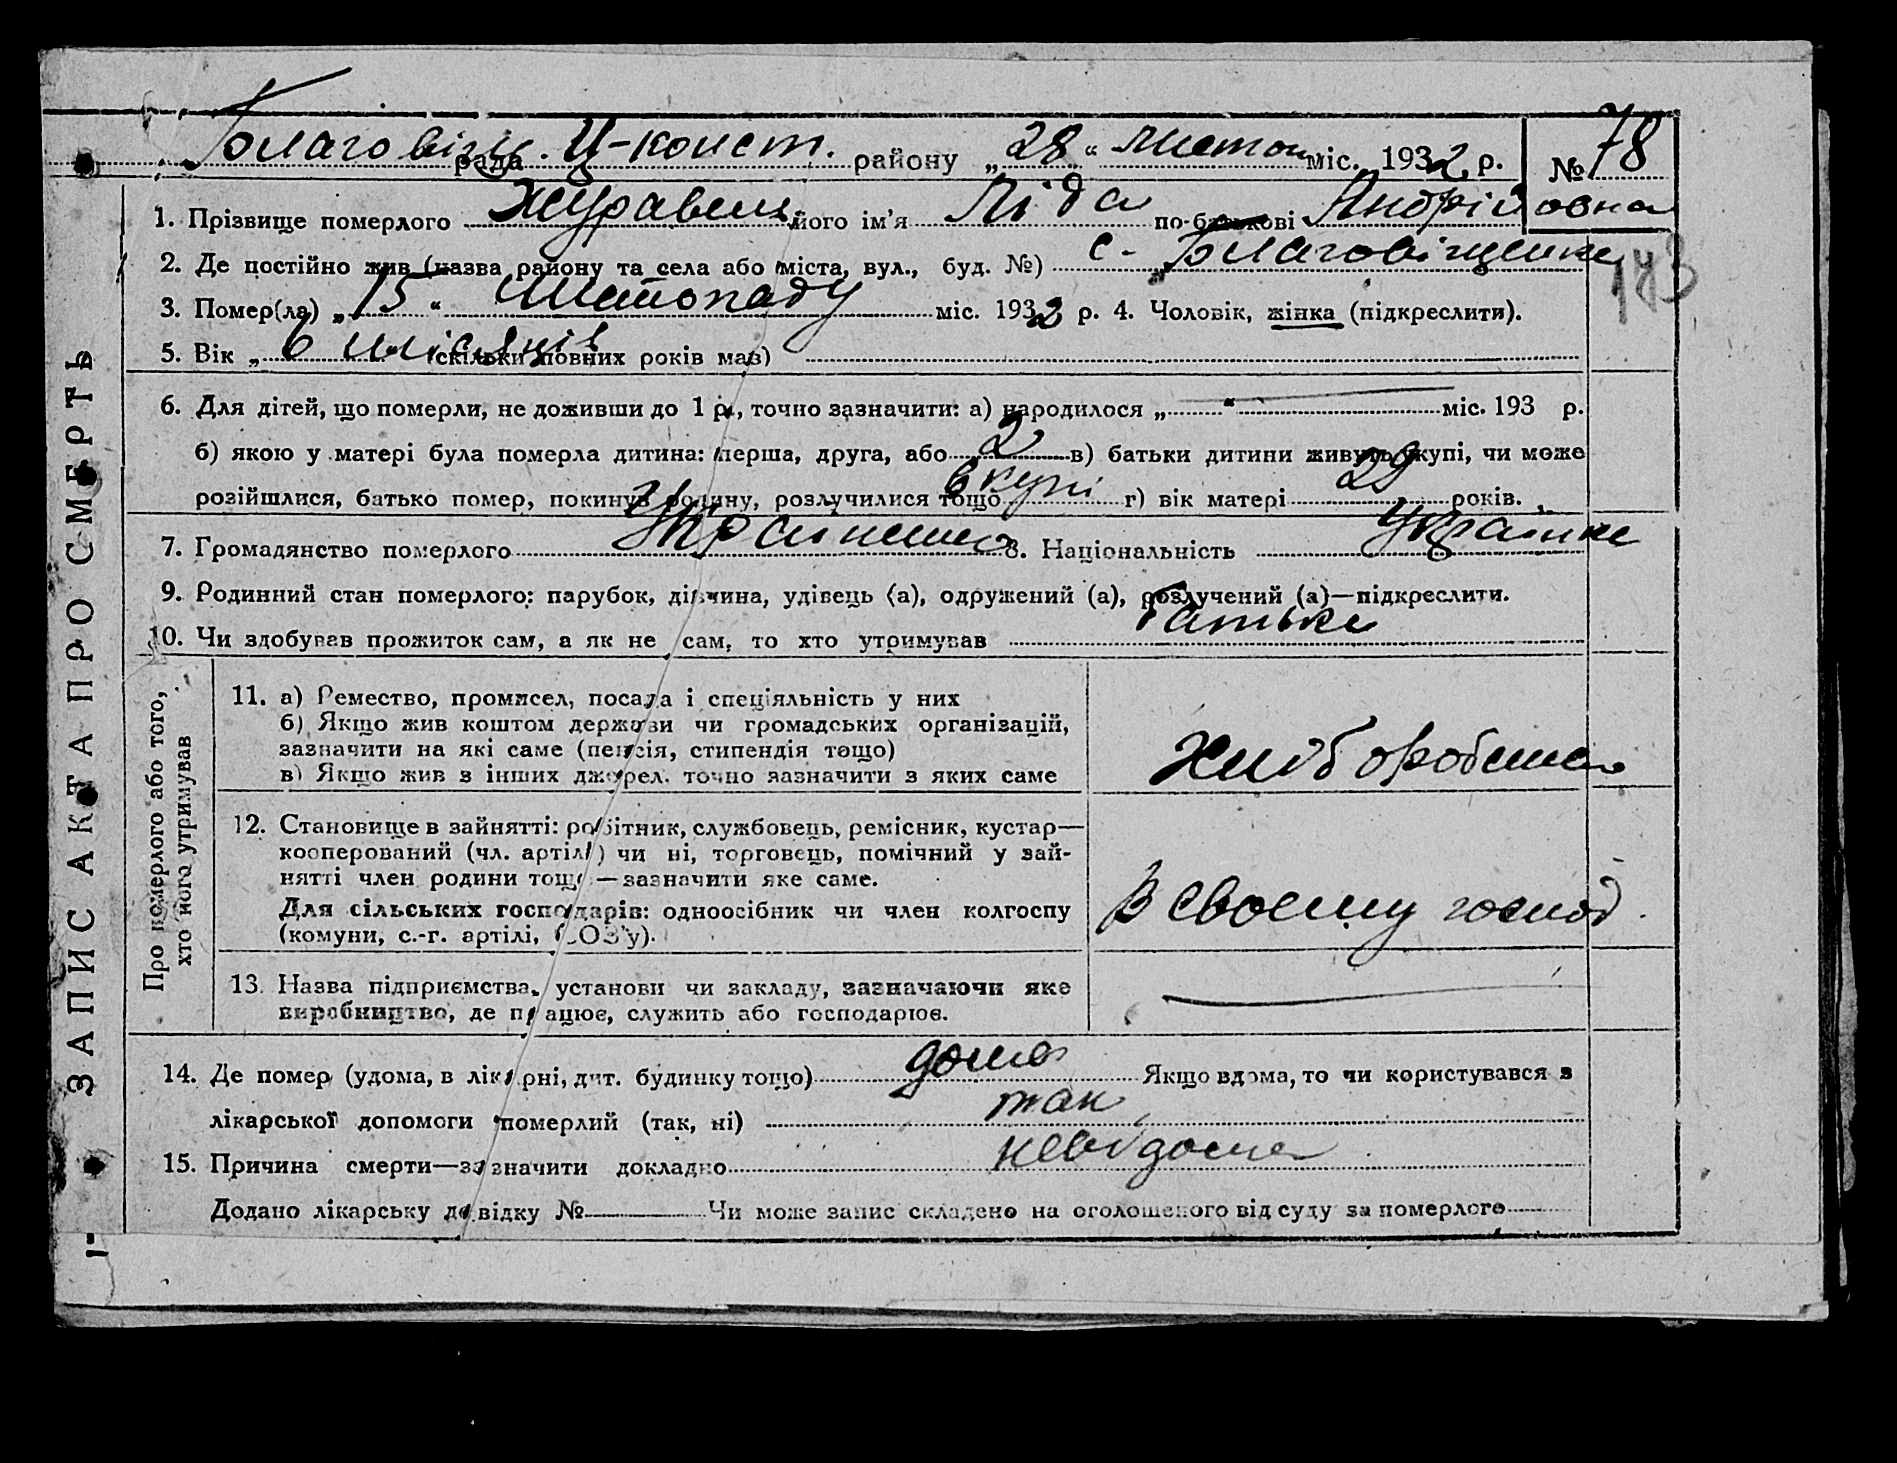 Благовіщ. рада Ц-конст. району „28“ листоп міс. 1932 р. № 78
1. Прізвище померлого Журавель його ім'я Ліда по-батькові Андріївна
2. Де постійно жив (назва району та села або міста, вул., буд. №) с. Благовіщенка
173
3. Помер(ла) „15“ Листопаду міс. 1932 р. 4. Чоловік, жінка (підкреслити).
5. Вік „6 місяців (скільки повних років мав)
6. Для дітей, що померли, не доживши до 1 р., точно зазначити: а) народилося „ “ міс. 193 р.
б) якою у матері була померла дитина: перша, друга, або 2 в) батьки дитини живуть вкупі, чи може
розійшлися, батько помер, покинув родину, розлучилися тощо вкупі г) вік матері 29 років.
7. Громадянство померлого 8. Національність Українка
9. Родинний стан померлого: парубок, дівчина, удівець (а), одружений (а), розлучений (а)—підкреслити.
10. Чи здобував прожиток сам, а як не сам, то хто утримував батько
ЗАПИС АКТА ПРО СМЕРТЬ
Про померлого або того, хто його утримував
11. а) Ремество, промисел, посада і спеціяльність у них
б) Якщо жив коштом держави чи громадських організацій,
зазначити на які саме (пенсія, стипендія тощо)
в) Якщо жив з інших джерел. точно зазначити з яких саме
Хлібороб
12. Становище в зайнятті: робітник, службовець, ремісник, кустар—
кооперований (чл. артілі) чи ні, торговець, помічний у зай-
нятті член родини тощо—зазначити яке саме.
Для сільських господарів: одноосібник чи член колгоспу
(комуни, с.-г. артілі, СОЗ'у).
В своєму господ.
13. Назва підприємства, установи чи закладу, зазначаючи яке
виробництво, де працює, служить або господарює.
14. Де помер (удома, в лікарні, дит. будинку тощо) дома Якщо вдома, то чи користувався з
лікарської допомоги померлий (так, ні) так
15. Причина смерти—зазначити докладно невідома
Додано лікарську довідку № Чи може запис складено на оголошеного від суду за померлого